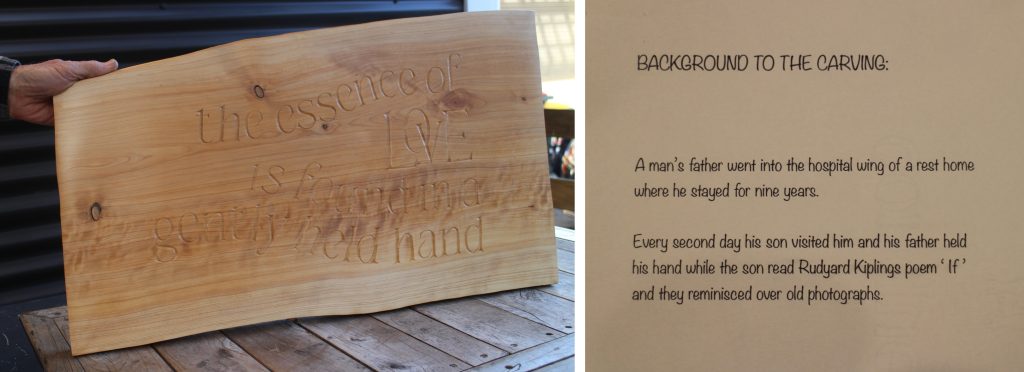 the essence of
LOVE
is found in a
gently held hand
BACKGROUND TO THE CARVING:
A man's father went into the hospital wing of a rest home
where he stayed for nine years.
Every second day his son visited him and his father held
his hand while the son read Rudyard Kiplings poem ' If '
and they reminisced over old photographs.